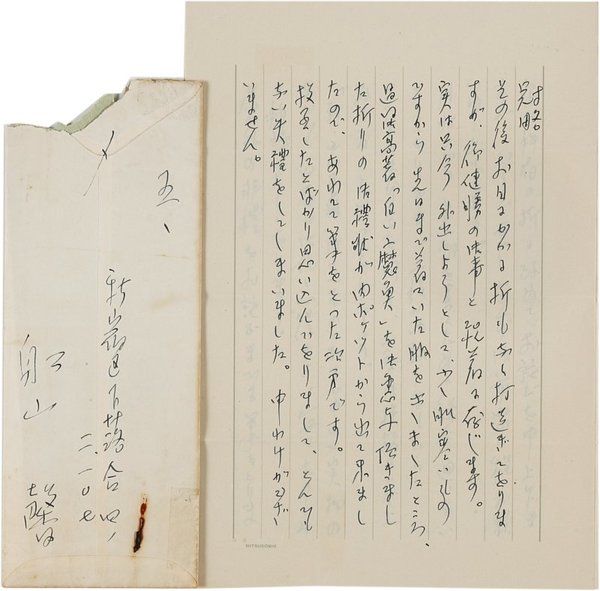 冠略
その後お目にかかる折もなく打過ぎてをりま
すが、御健勝の御事と祝着に存じます。
実は只今外出しようとして、少し肌寒いもの
ですから先日まで着ていた服を出しましたところ、
過日御高著「白い人魚」を御恵与頂きまし
た折りの御禮状が内ポケットから出て来まし
たので、あわてて筆をとった次第です。
投函したとばかり思い込んでをりまして、とんだ
失禮をしてしまいました。申わけがござ
いません。
五、
新宿区下落合四ノ
二、一〇七
舟山
MITSUKOSHI